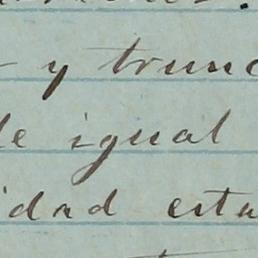 y trunc
de igual
idad esta